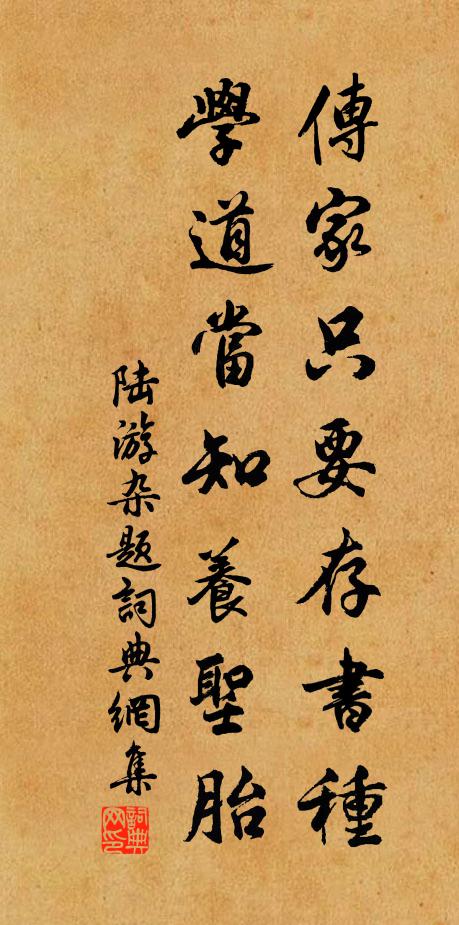 傳家只要存書種
學道當知養聖胎
陆游杂题詞典網集
詞典
网印